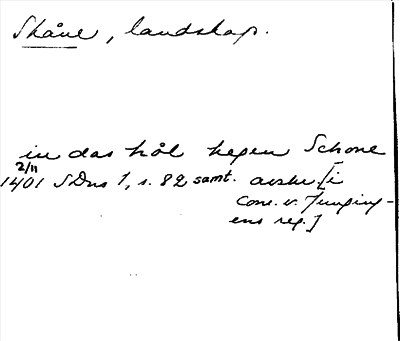 Skåne, landskap.
in das hól kegen Schone
2/11
1401 SDns 1, s. 82 samt. avskr. [i
Conr. v. Junging-
ens reg.]